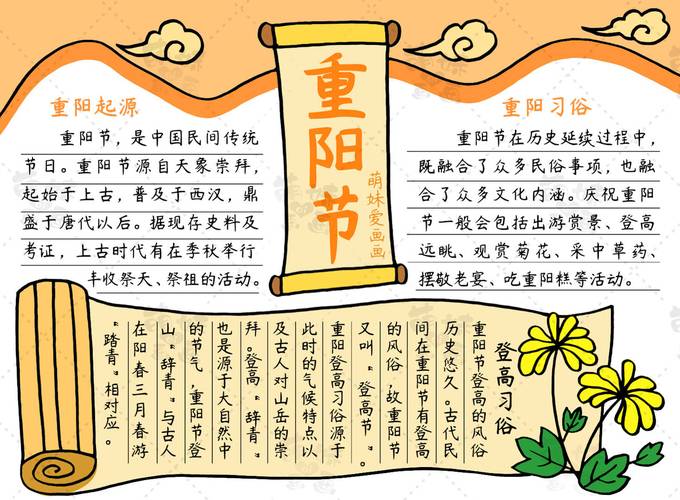 重阳节
萌妹爱画画
重阳起源
重阳节，是中国民间传统
节日。重阳节源自天象崇拜，
起始于上古，普及于西汉，鼎
盛于唐代以后。据现存史料及
考证，上古时代有在季秋举行
丰收祭天、祭祖的活动。
重阳习俗
重阳节在历史延续过程中，
既融合了众多民俗事项，也融
合了众多文化内涵。庆祝重阳
节一般会包括出游赏景、登高
远眺、观赏菊花、采中草药、
摆敬老宴、吃重阳糕等活动。
登高习俗
重阳节登高的风俗
历史悠久。古代民
间在重阳节有登高
的风俗，故重阳节
又叫“登高节”。
重阳登高习俗源于
此时的气候特点以
及古人对山岳的崇
拜。登高“辞青”
也是源于大自然中
的节气，重阳节登
山“辞青”与古人
在阳春三月春游
“踏青”相对应。